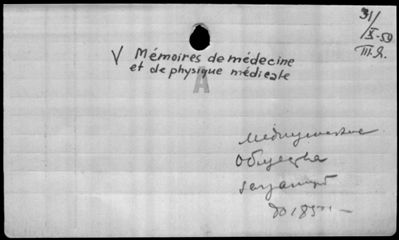 31/
X-59
III.Я.
V Mémoires de médecine
et de physique médicale
A
Медицинские
Общества
до 1850 г.